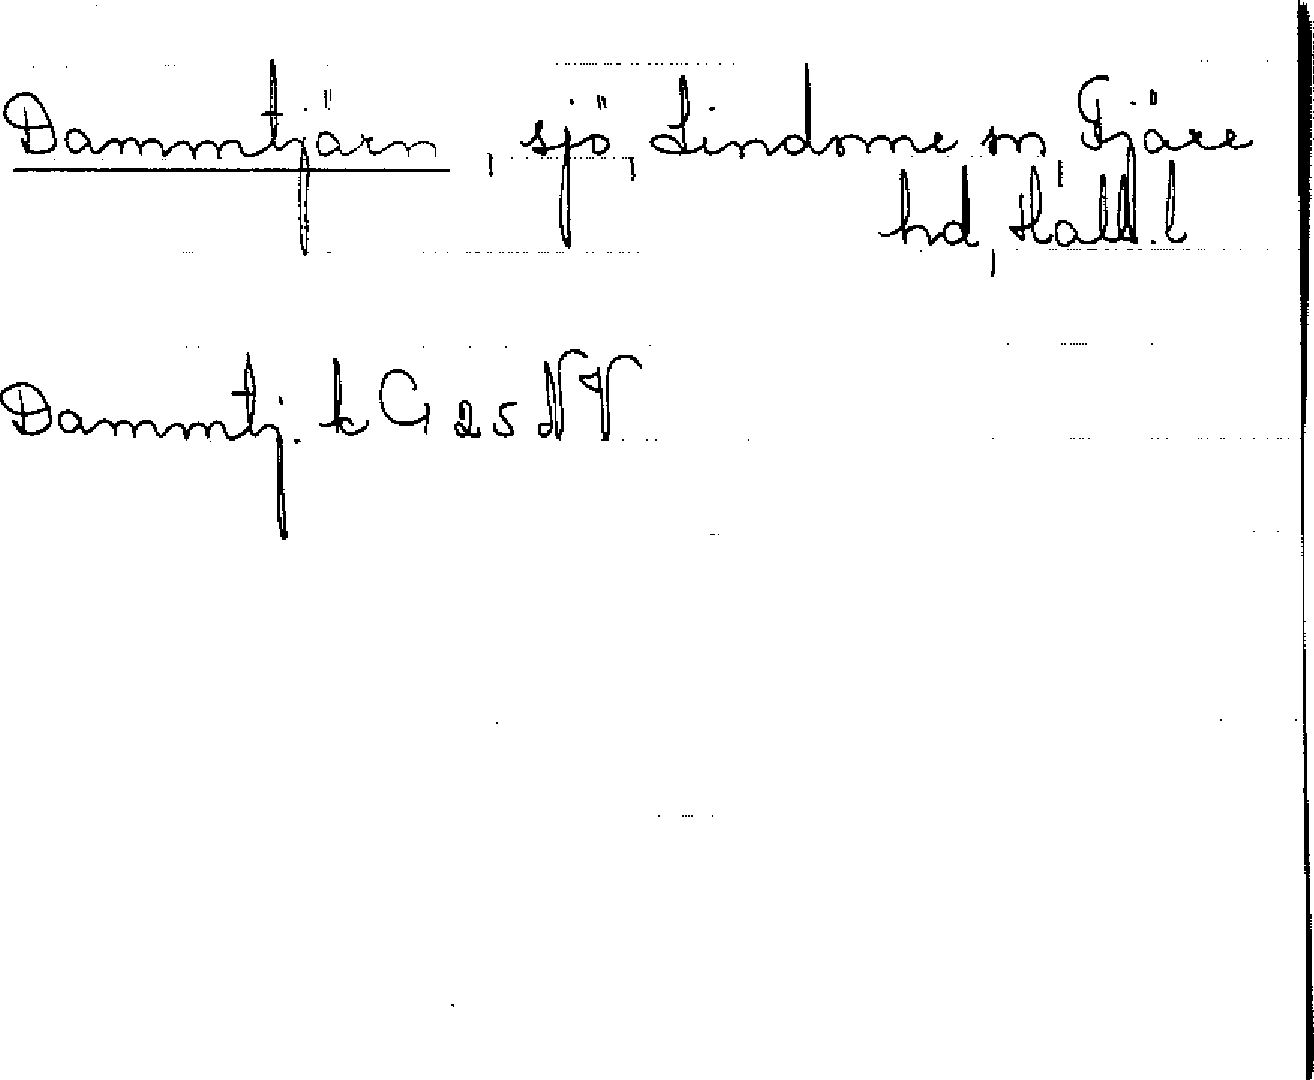 Dammtjärn, sjö, Lindome sn, Fjäre
hd, Hall. l
Dammtj. k G 25 NV